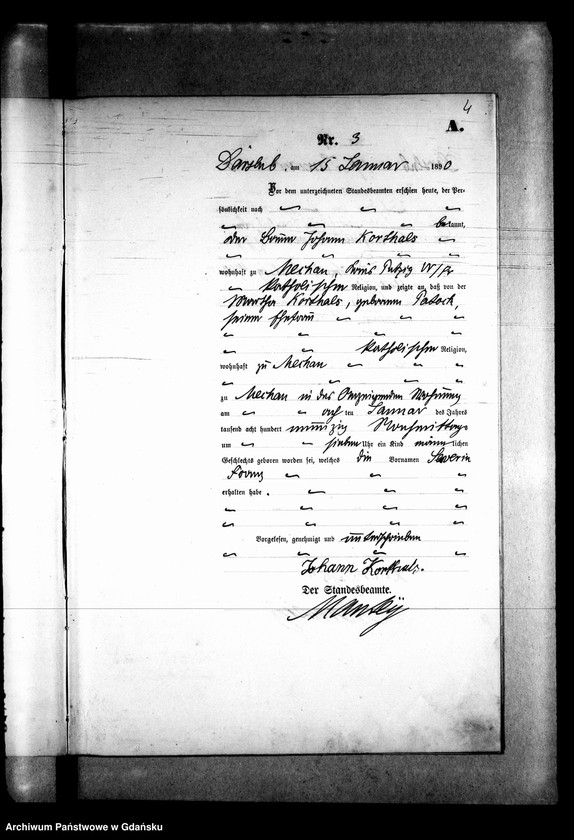 4
A.
Nr. 3
Darslub, am 15 Januar 1890
Vor dem unterzeichneten Standesbeamten erschien heute, der Per-
sönlichkeit nach
bekannt,
der Johann Korthals
wohnhaft zu Mechau, Kreis Putzig W/Pr
katholischen Religion, und zeigte an, daß von der
Martha Korthals, geborenen Patock,
seiner Ehefrau
katholischen Religion,
wohnhaft zu Mechau
zu Mechau in des Anzeigenden Wohnung
am acht ten Januar des Jahres
tausend acht hundert neunzig Nachmittags
um sieben Uhr ein Kind männlichen
Geschlechts geboren worden sei, welches die Vornamen Severin
Franz
erhalten habe.
Vorgelesen, genehmigt und unterschrieben
Johann Korthals.
Der Standesbeamte.
Archiwum Państwowe w Gdańsku